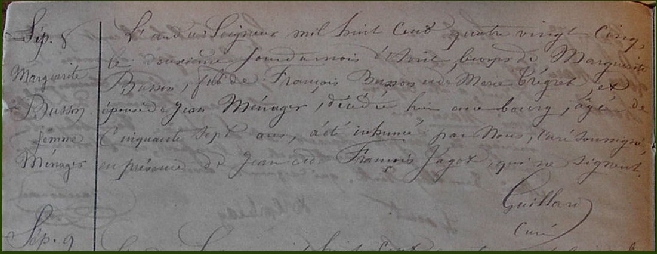 Sép. 8
Marguerite
Busson
femme
Ménager
L'an du Seigneur mil huit cent quatre vingt cinq
le douzième jour du mois d'Août le corps de Marguerite
Busson, fille de François Busson et de Marie Trégret et
épouse de Jean Ménager, décédée hier au bourg, âgée de
Cinquante sept ans, a été inhumé par Nous, Curé soussigné,
en présence de Jean et de François Jagot, qui ne signent.
Guillard
Curé
Sép. 9